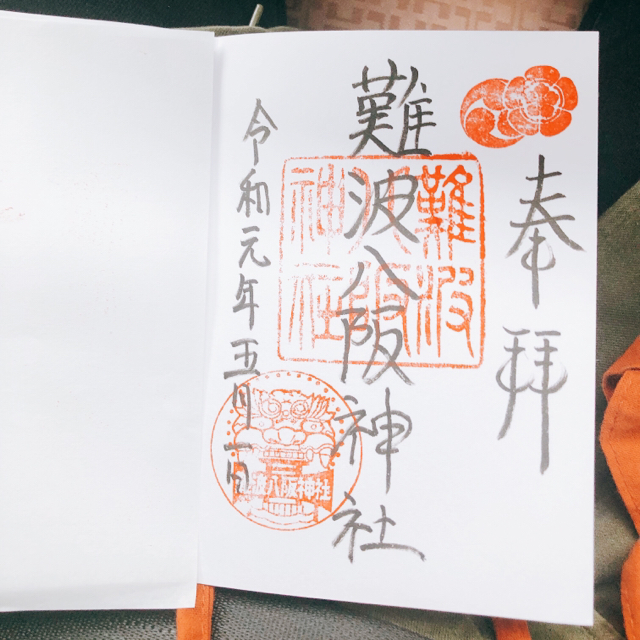 奉拝
難波八阪神社
難波
八阪
神社
令和元年五月一日
難波八阪神社